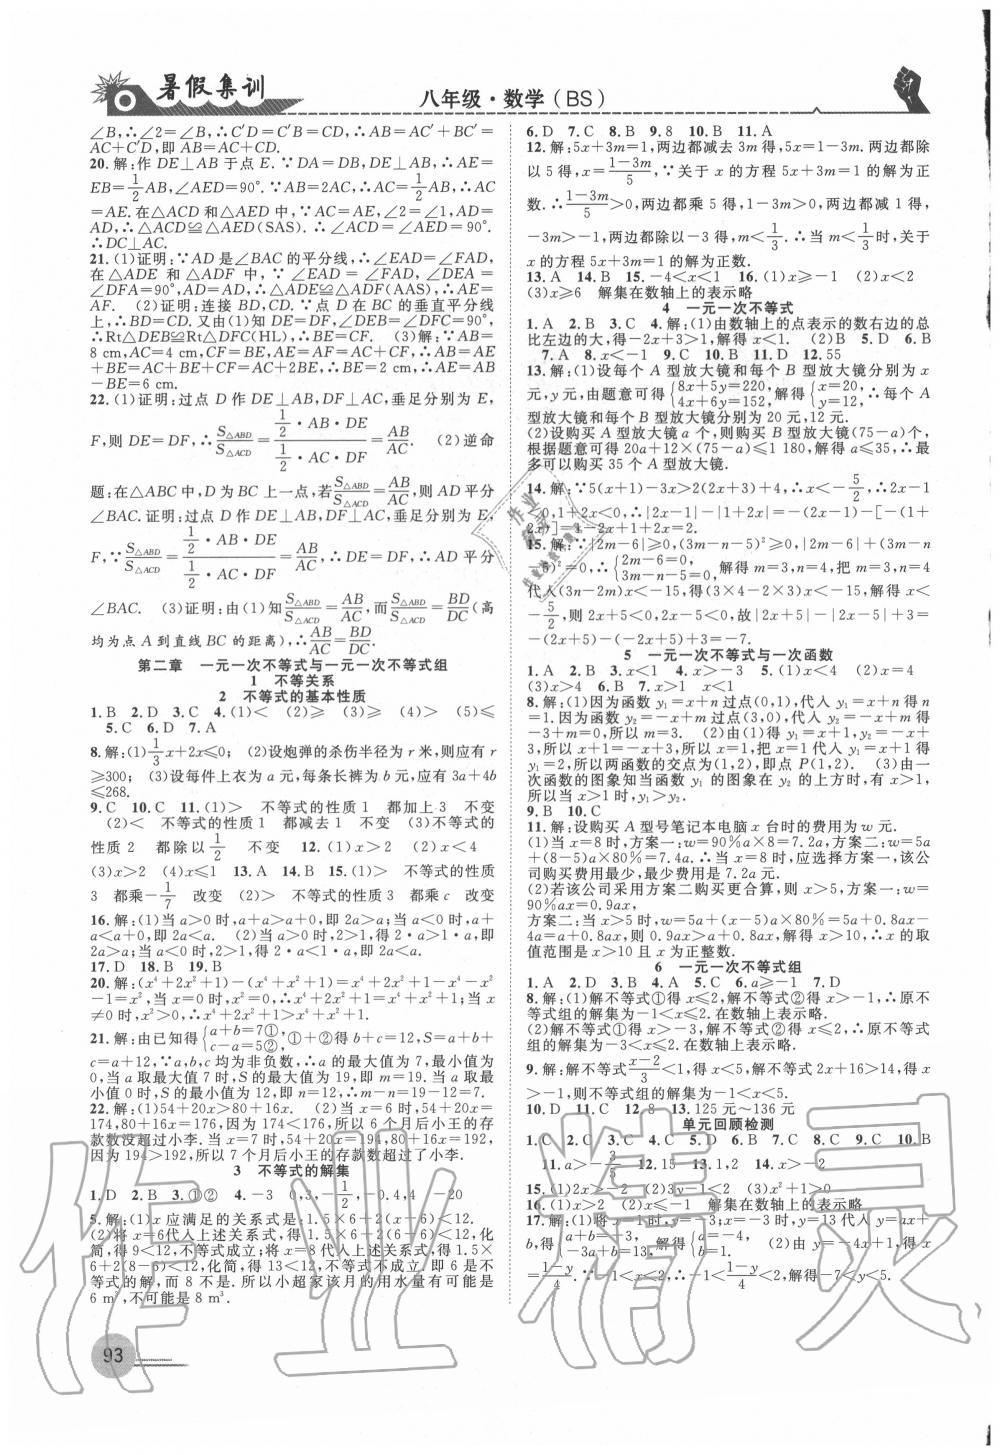 暑假集训
八年级·数学(BS)
∠B,∴∠2=∠B,∴C′D=C′B=CD,∴AB=AC′+BC′=
AC+C′D,即 AB=AC+CD.
20.解:作 DE⊥AB 于点 E.∵DA=DB,DE⊥AB,∴AE=
EB=1/2AB,∠AED=90°.∵AB=2AC,∴AC=1/2AB,∴AC
=AE.在△ACD 和△AED 中,∵AC=AE,∠2=∠1,AD=
AD,∴△ACD≌△AED(SAS).∴∠ACD=∠AED=90°.
∴DC⊥AC.
21.(1)证明:∵AD 是∠BAC 的平分线,∴∠EAD=∠FAD,
在△ADE 和△ADF 中,∵∠EAD=∠FAD,∠DEA=
∠DFA=90°,AD=AD,∴△ADE≌△ADF(AAS),∴AE=
AF. (2)证明:连接 BD,CD.∵点 D 在 BC 的垂直平分线
上,∴BD=CD.又由(1)知 DE=DF,∠DEB=∠DFC=90°,
∴Rt△DEB≌Rt△DFC(HL),∴BE=CF. (3)解:∵AB=
8 cm,AC=4 cm,CF=BE,AE=AF=AC+CF,∴AB=AE+
BE=AC+BE+CF=AC+2BE,∴BE=2 cm,∴AE=AB
-BE=6 cm.
22.(1)证明:过点 D 作 DE⊥AB,DF⊥AC,垂足分别为 E,
F,则 DE=DF,∴S△ABD/S△ACD=(1/2·AB·DE)/(1/2·AC·DF)=AB/AC. (2)逆命
题:在△ABC 中,D 为 BC 上一点,若S△ABD/S△ACD=AB/AC,则 AD 平分
∠BAC.证明:过点 D 作 DE⊥AB,DF⊥AC,垂足分别为 E,
F,∵S△ABD/S△ACD=(1/2·AB·DE)/(1/2·AC·DF)=AB/AC,∴DE=DF,∴AD 平分
∠BAC. (3)证明:由(1)知S△ABD/S△ACD=AB/AC,而S△ABD/S△ACD=BD/DC(高
均为点 A 到直线 BC 的距离),∴AB/AC=BD/DC.
第二章 一元一次不等式与一元一次不等式组
1 不等关系
2 不等式的基本性质
1.B 2.D 3.C 4.(1)< (2)≥ (3)≥ (4)> (5)≤
5.C 6.D 7.A
8.解:(1)1/3x+2x≤0; (2)设炮弹的杀伤半径为 r 米,则应有 r
≥300; (3)设每件上衣为 a 元,每条长裤为 b 元,应有 3a+4b
≤268.
9.C 10.C 11.(1)> 不等式的性质 1 都加上 3 不变
(2)< 不等式的性质 1 都减去 1 不变 (3)不等式的
性质 2 都除以1/2 不变 12.(1)x>2 (2)x<4
(3)x>2 (4)x≤1 13.A 14.A 15.(1)> 不等式的性质
3 都乘-1/7 改变 (2)> 不等式的性质 3 都乘 c 改变
16.解:(1)当 a>0 时,a+a>a+0,即 2a>a;当 a<0 时,a+
a<a+0,即 2a<a. (2)当 a>0 时,2>1,得 2·a>1·a,即
2a>a;当 a<0 时,2>1,得 2·a<1·a,即 2a<a.
17.D 18.B 19.B
20.解:(x⁴+2x²+1)-(x⁴+x²+1)=x⁴+2x²+1-x⁴-x²
-1=x²,当 x=0 时,x²=0,∴x⁴+2x²+1=x⁴+x²+1;当 x
≠0 时,x²>0,∴x⁴+2x²+1>x⁴+x²+1.
21.解:由已知得{a+b=7①, c-a=5②,①+②得 b+c=12,S=a+b+
c=a+12,∵a,b,c 均为非负数,∴a 的最大值为 7,最小值为
0,当 a 取最大值 7 时,S 的最大值为 19,即 m=19,当 a 取最
小值 0 时,S 的最小值为 12,即 n=12,∴m-n=19-12=7.
22.解:(1)54+20x>80+16x. (2)当 x=6 时,54+20x=
174,80+16x=176,因为 174<176,所以 6 个月后小王的存
款数没超过小李.当 x=7 时,54+20x=194,80+16x=192,
因为 194>192,所以 7 个月后小王的存款数超过了小李.
3 不等式的解集
1.D 2.B 3.①② 4.-3 0,3,-1/2,-0.4,4 -20
5.解:(1)x 应满足的关系式是:1.5×6+2(x-6)<12.
(2)将 x=6 代入上述关系式,得 1.5×6+2(6-6)<12,化
简,得 9<12,不等式成立;将 x=8 代入上述关系式,得 1.5×
6+2(8-6)<12,化简,得 13<12,不等式不成立,即 6 是不
等式的解,而 8 不是.所以小超家该月的用水量有可能是
6 m³,不可能是 8 m³.
93
6.D 7.C 8.B 9.8 10.B 11.A
12.解:5x+3m=1,两边都减去 3m 得,5x=1-3m.两边都除
以 5 得,x=(1-3m)/5,∵关于 x 的方程 5x+3m=1 的解为正
数.∴(1-3m)/5>0,两边都乘 5 得,1-3m>0,两边都减 1 得,
-3m>-1,两边都除以-3 得,m<1/3.∴当 m<1/3时,关于
x 的方程 5x+3m=1 的解为正数.
13.A 14.B 15.-4<x<1 16.(1)x≥-1 (2)x<2
(3)x≥6 解集在数轴上的表示略
4 一元一次不等式
1.A 2.B 3.C 4.解:(1)由数轴上的点表示的数右边的总
比左边的大,得-2x+3>1,解得 x<1. (2)B 5.D 6.B
7.A 8.x<-1 9.C 10.B 11.D 12.55
13.解:(1)设每个 A 型放大镜和每个 B 型放大镜分别为 x
元,y 元,由题意可得{8x+5y=220, 4x+6y=152,解得{x=20, y=12,∴每个 A
型放大镜和每个 B 型放大镜分别为 20 元,12 元.
(2)设购买 A 型放大镜 a 个,则购买 B 型放大镜(75-a)个,
根据题意可得 20a+12×(75-a)≤1 180,解得 a≤35,∴最
多可以购买 35 个 A 型放大镜.
14.解:∵5(x+1)-3x>2(2x+3)+4,∴x<-5/2,∴2x-1
<0,1+2x<0,∴|2x-1|-|1+2x|=-(2x-1)-[-(1+
2x)]=1-2x+1+2x=2.
15.解:∵|2m-6|≥0,(3m-n-5)²≥0,|2m-6|+(3m-n
-5)²=0,∴{2m-6=0, 3m-n-5=0,解得 m=3,n=4,把 m=3,n=4
代入(3n-2m)x<-15,得(3×4-2×3)x<-15,解得 x<
-5/2,则 2x+5<0,2x-5<0,故|2x+5|-|2x-5|+3=
-(2x+5)+(2x-5)+3=-7.
5 一元一次不等式与一次函数
1.A 2.B 3.x<1 4.x>-3 5.(1)x<4 (2)x=4
(3)x>4 6.B 7.x>1 x<1
8.解:(1)因为函数 y₁=x+n 过点(0,1),代入 y₁=x+n 得
n=1.因为函数 y₂=-x+m 过点(3,0),代入 y₂=-x+m 得
-3+m=0,所以 m=3. (2)由(1)得 y₁=x+1,y₂=-x+3,
所以 x+1=-x+3,所以 x=1,把 x=1 代入 y₁=x+1 得
y₁=2,所以两函数的交点为(1,2),即点 P(1,2). (3)由一
次函数的图象知当函数 y₁ 的图象在 y₂ 的上方时,有 x>1,
所以当 y₁>y₂ 时,x>1.
9.B 10.C
11.解:设购买 A 型号笔记本电脑 x 台时的费用为 w 元.
(1)当 x=8 时,方案一:w=90%a×8=7.2a,方案二:w=5a
+(8-5)a×80%=7.4a.∴当 x=8 时,应选择方案一,该公
司购买费用最少,最少费用是 7.2a 元.
(2)若该公司采用方案二购买更合算,则 x>5,方案一:w=
90%ax=0.9ax,
方案二:当 x>5 时,w=5a+(x-5)a×80%=5a+0.8ax-
4a=a+0.8ax,则 0.9ax>a+0.8ax,解得 x>10,∴x 的取
值范围是 x>10 且 x 为正整数.
6 一元一次不等式组
1.A 2.D 3.B 4.C 5.C 6.a≥-1 7.D
8.解:(1)解不等式①得 x≤2,解不等式②得 x>-1,∴原不
等式组的解集为-1<x≤2.在数轴上表示略.
(2)解不等式①得 x>-1,解不等式②得 x≤2,∴原不等式
组的解集为-1<x≤2.在数轴上表示略.
9.解:解不等式(x-2)/3<1,得 x<5,解不等式 2x+16>14,
得 x>-1,则不等式组的解集为-1<x<5.
10.D 11.C 12.8 13.125 元~136 元
单元回顾检测
1.C 2.C 3.C 4.C 5.A 6.D 7.B 8.C 9.C 10.B
15.(1)2x>-2 (2)3y-1<2 (3)x²+1>0
16.(1)x>2 (2)x≤-1 解集在数轴上的表示略